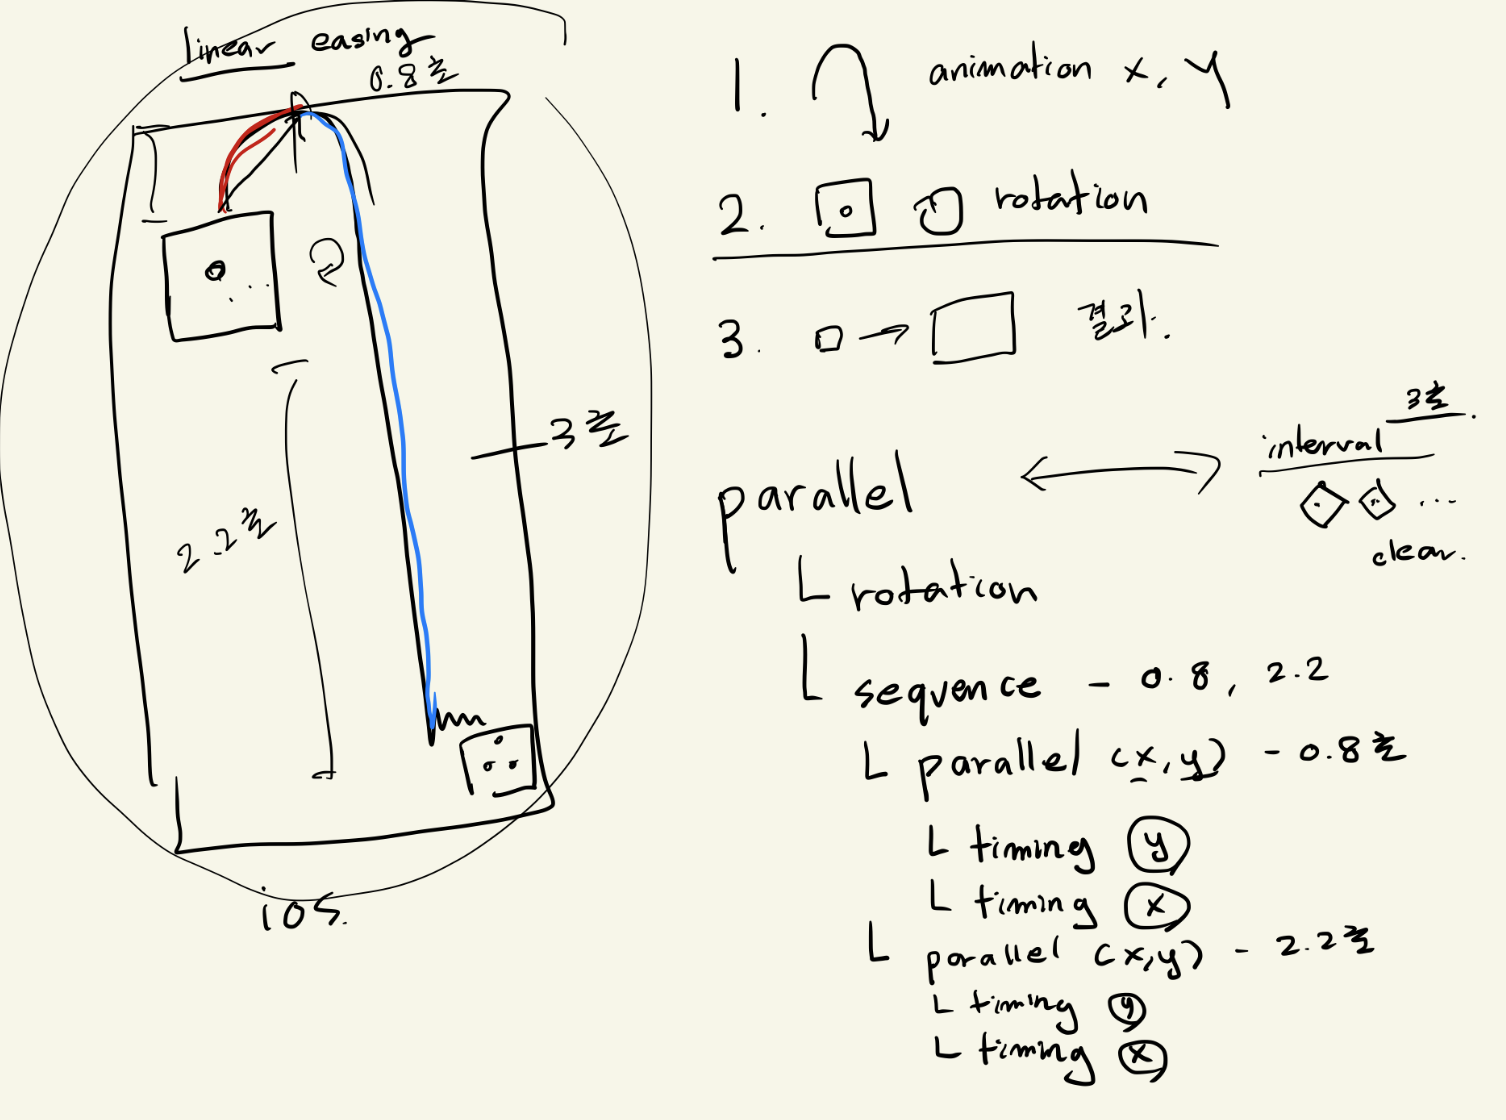 linear easing
0.8초
3초
2.2초
ios.
1. animation x, y
2. rotation
3. → 결과.
parallel
interval 3초.
...
clear.
└ rotation
└ sequence - 0.8, 2.2
└ parallel (x,y) - 0.8초
└ timing y
└ timing x
└ parallel (x,y) - 2.2초
└ timing y
└ timing x